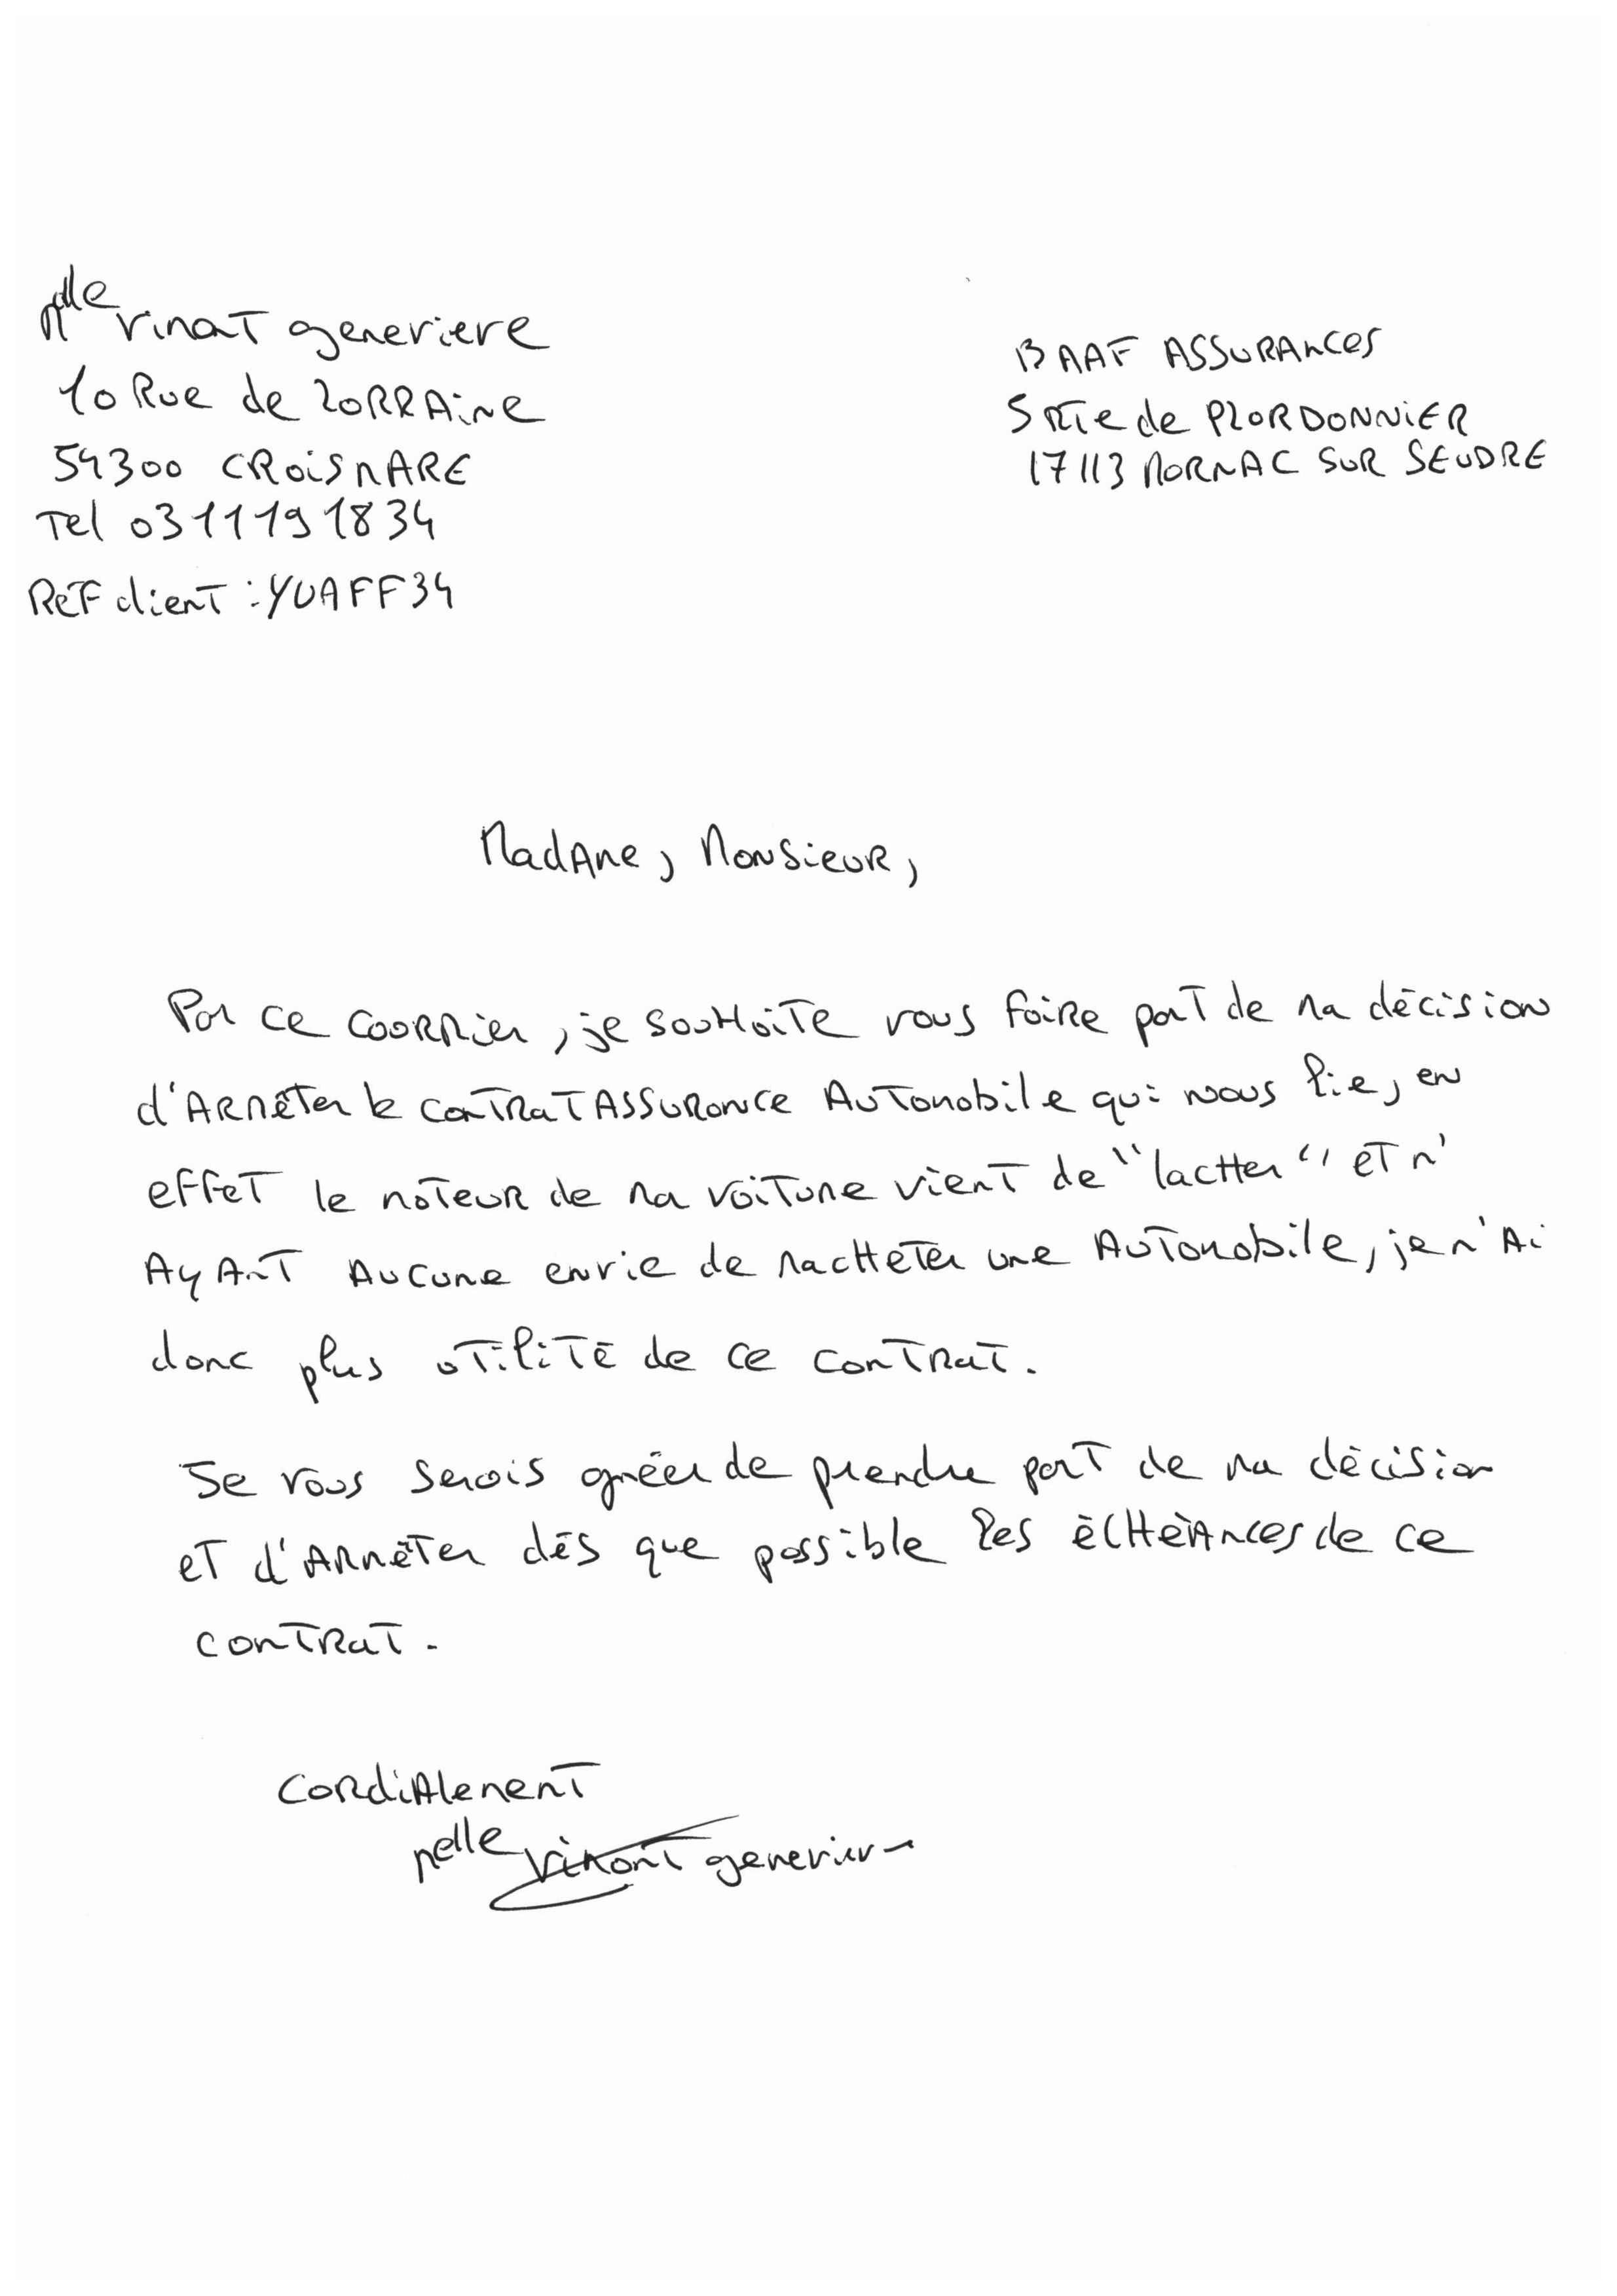 Mlle Vinat genevieve
10 Rue de LORRAine
54300 CROiSMARE
Tel 0311191834
REF client : YUAFF34
BAAF ASSURANCES
5 RTE de PLORDONNIER
17113 MORNAC SUR SEUDRE
MadAme, Monsieur,
Par ce courrier, je souhaite vous faire part de ma décision
d'arrêter le contrat assurance automobile qui nous lie, en
effet le moteur de ma voiture vient de "lacher" et n'
ayant aucune envie de racheter une automobile, je n'ai
donc plus utilité de ce contrat.
Je vous serois gréer de prendre part de ma décision
et d'arrêter dés que possible les échéances de ce
contrat.
Cordialement
Melle Vinat genevieve